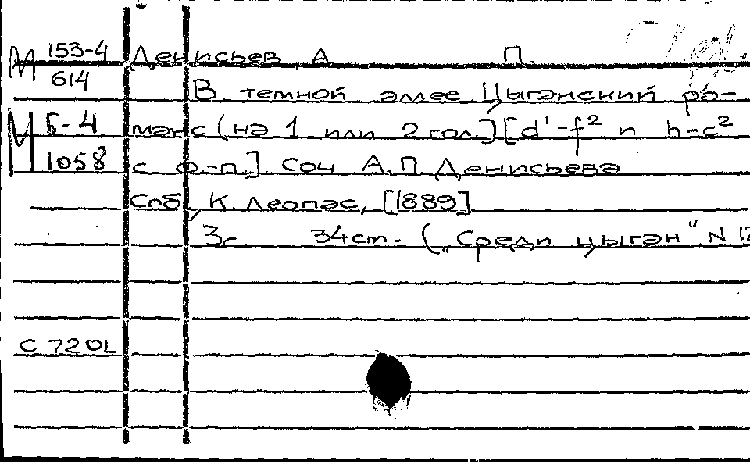 М 153-4 Денисьев, А. П.
614 В темной аллее Цыганский ро-
М Б-4 манс (на 1 или 2 гол.) [d¹-f² и h-c²
1058 с ф-п.] Соч А.П Денисьева
Спб, К Леопас, [1889]
3с 34cm. („Среди цыган" N 12
С 720L